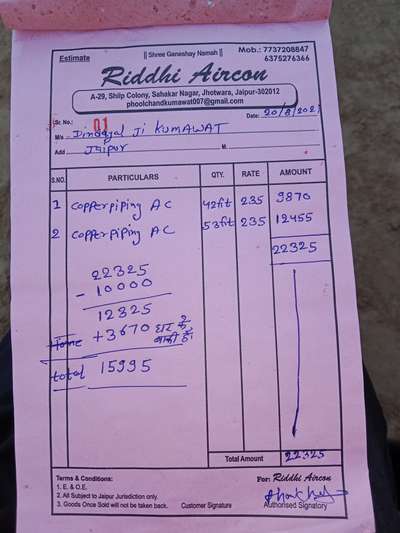 Estimate
|| Shree Ganeshay Namah ||
Mob.: 7737208847
6375276366
Riddhi Aircon
A-29, Shilp Colony, Sahakar Nagar, Jhotwara, Jaipur-302012
phoolchandkumawat007@gmail.com
Sr. No.: 01
Date: 20/8/2021
M/s Dinagyal Ji KUMAWAT
Add Jaipur M.
S.NO. PARTICULARS QTY. RATE AMOUNT
1 Copperpiping AC 42fit 235 9870
2 Copperpiping AC 53fit 235 12455
22325
22325
- 10000
12325
Home +3670 घर के
बाकी है
total 15995
Total Amount 22325
Terms & Conditions:
1. E. & O.E.
2. All Subject to Jaipur Jurisdiction only.
3. Goods Once Sold will not be taken back.
Customer Signature
For: Riddhi Aircon
Authorised Signatory